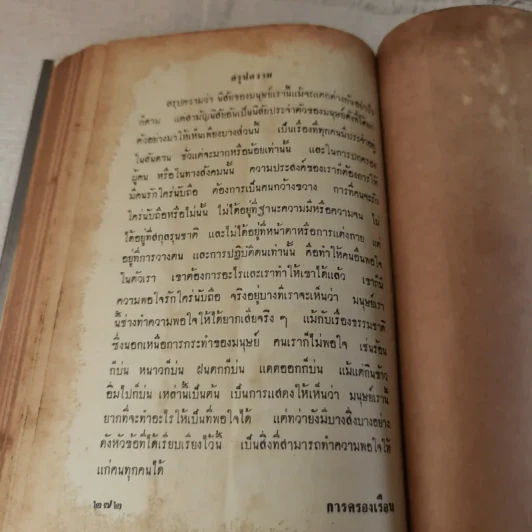 สรุปความ
สรุปความว่า นิสัยของมนุษย์เรานี้แม้จะแตกต่างกันอย่างไร
ก็ตาม แต่สามัญนิสัยอันเป็นนิสัยประจำตัวของมนุษย์ดังที่ได้ยก
ตัวอย่างมาให้เห็นเพียงบางส่วนนี้ เป็นเรื่องที่ทุกคนมีประจำอยู่
ในสันดาน ชั่วแต่จะมากหรือน้อยเท่านั้น และในการปกครอง
ผู้คน หรือในทางสังคมนั้น ความประสงค์ของเราก็ต้องการให้
มีคนรักใคร่นับถือ ต้องการเป็นคนกว้างขวาง การที่คนจะรัก
ใคร่นับถือหรือไม่นั้น ไม่ได้อยู่ที่ฐานะความมีหรือความจน ไม่
ได้อยู่ที่สกุลรุนชาติ และไม่ได้อยู่ที่หน้าตาหรือการแต่งกาย แต่
อยู่ที่การวางตน และการปฏิบัติตนเท่านั้น คือทำให้คนอื่นพอใจ
ในตัวเรา เขาต้องการอะไรและเราทำให้เขาได้แล้ว เขาก็มี
ความพอใจรักใคร่นับถือ จริงอยู่บางทีเราจะเห็นว่า มนุษย์เรา
นี้ช่างทำความพอใจให้ได้ยากเสียจริง ๆ แม้กับเรื่องธรรมชาติ
ซึ่งนอกเหนือการกระทำของมนุษย์ คนเราก็ไม่พอใจ เช่นร้อน
ก็บ่น หนาวก็บ่น ฝนตกก็บ่น แดดออกก็บ่น แม้แต่กินข้าว
อิ่มไปก็บ่น เหล่านี้เป็นต้น เป็นการแสดงให้เห็นว่า มนุษย์เรานี้
ยากที่จะทำอะไรให้เป็นที่พอใจได้ แต่ทว่ายังมีบางสิ่งบางอย่าง
ดังหัวข้อที่ได้เรียบเรียงไว้นี้ เป็นสิ่งที่สามารถทำความพอใจให้
แก่คนทุกคนได้
๒๗๒ การครองเรือน